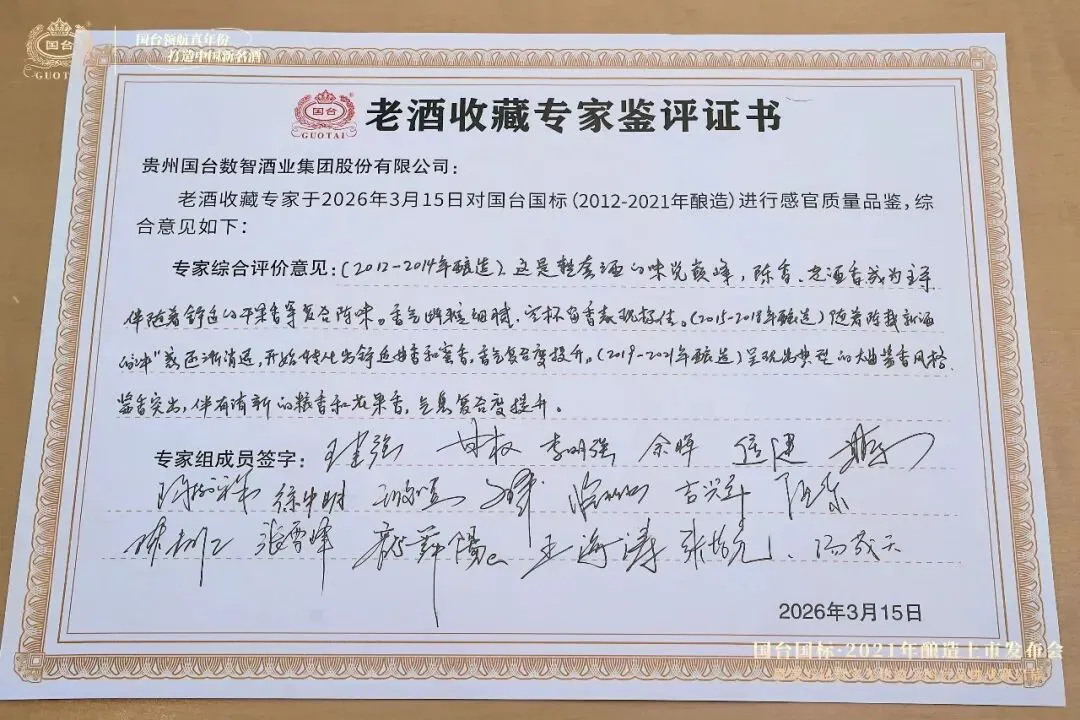 国台
GUOTAI
国台领航真年份
打造中国新名酒
国台
GUOTAI
老酒收藏专家鉴评证书
贵州国台数智酒业集团股份有限公司：
老酒收藏专家于2026年3月15日对国台国标（2012-2021年酿造）进行感官质量品鉴，综
合意见如下：
专家综合评价意见：(2012-2014年酿造)，这是整套酒的味觉巅峰，陈香、老酒香成为主导
伴随着舒适的干果香等复合陈味。香气幽雅细腻，空杯留香表现极佳。(2015-2018年酿造)随着陈载新酒
的冲"感逐渐消退，开始转化为舒适曲香和蜜香，香气复合度提升。(2019-2021年酿造)呈现为典型的大曲酱香风格，
酱香突出，伴有清新的粮香和花果香，气息复合度提升。
专家组成员签字：李明强 余晖
徐中明 吉兴军
张雪峰 王海涛
2026年3月15日
国台国标·2021年酿造上市发布会